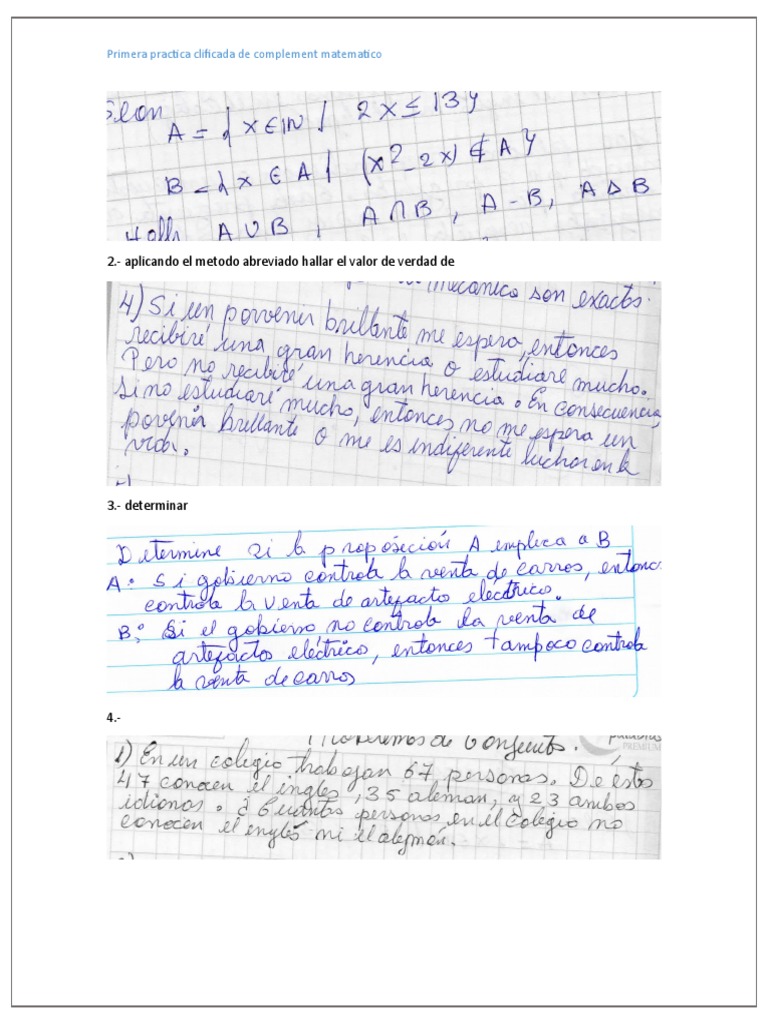 Primera practica clificada de complement matematico
A = { x ∈ IN / 2x ≤ 13 }
B = { x ∈ A / (x² - 2x) ∉ A }
A ∪ B , A ∩ B , A - B, A Δ B
2.- aplicando el metodo abreviado hallar el valor de verdad de
mecanica son exactos.
4) Si un porvenir brillante me espera, entonces
recibiré una gran herencia o estudiaré mucho.
Pero no recibiré una gran herencia. En consecuencia,
si no estudiaré mucho, entonces no me espera un
porvenir brillante o me es indiferente luchar en la
vida.
3.- determinar
Determine si la proposición A implica a B
A: Si gobierno controla la venta de carros, entonc
controla la venta de artefacto eléctrico.
B: Si el gobierno no controla la venta de
artefactos eléctrico, entonces tampoco controla
la venta de carros
4.-
de Conjuntos.
PREMIUM
1) En un colegio trabajan 67 personas. De éstos
47 conocen el ingles, 35 aleman, y 23 ambos
idiomas. ¿ Cuántas personas en el colegio no
conocen el inglés ni el alemán.